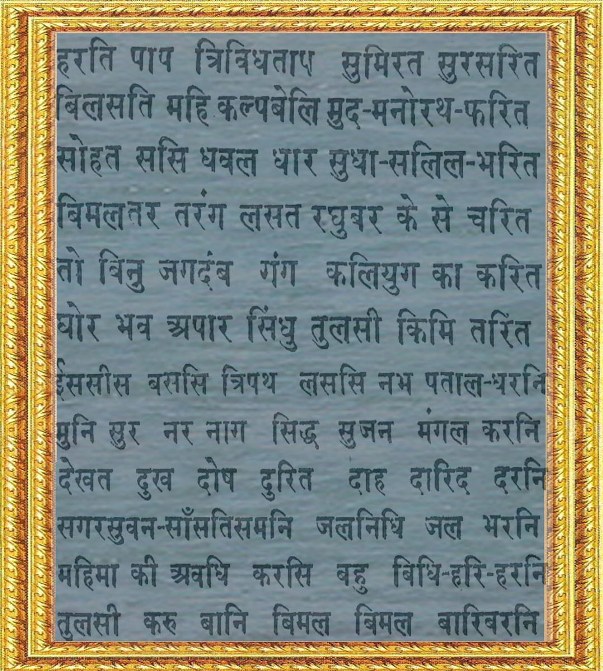 हरति पाप त्रिविधताप सुमिरत सुरसरित
बिलसति महि कल्पबेलि मुद-मनोरथ-फरित
सोहत ससि धवल धार सुधा-सलिल-भरित
बिमलतर तरंग लसत रघुबर के से चरित
तो बिनु जगदंब गंग कलियुग का करित
घोर भव अपार सिंधु तुलसी किमि तरित
ईससीस बससि त्रिपथ लससि नभ पताल-धरनि
मुनि सुर नर नाग सिद्ध सुजन मंगल करनि
देखत दुख दोष दुरित दाह दारिद दरनि
सगरसुवन-साँसतिसमनि जलनिधि जल भरनि
महिमा की अवधि करसि बहु बिधि-हरि-हरनि
तुलसी करु बानि बिमल बिमल बारिबरनि